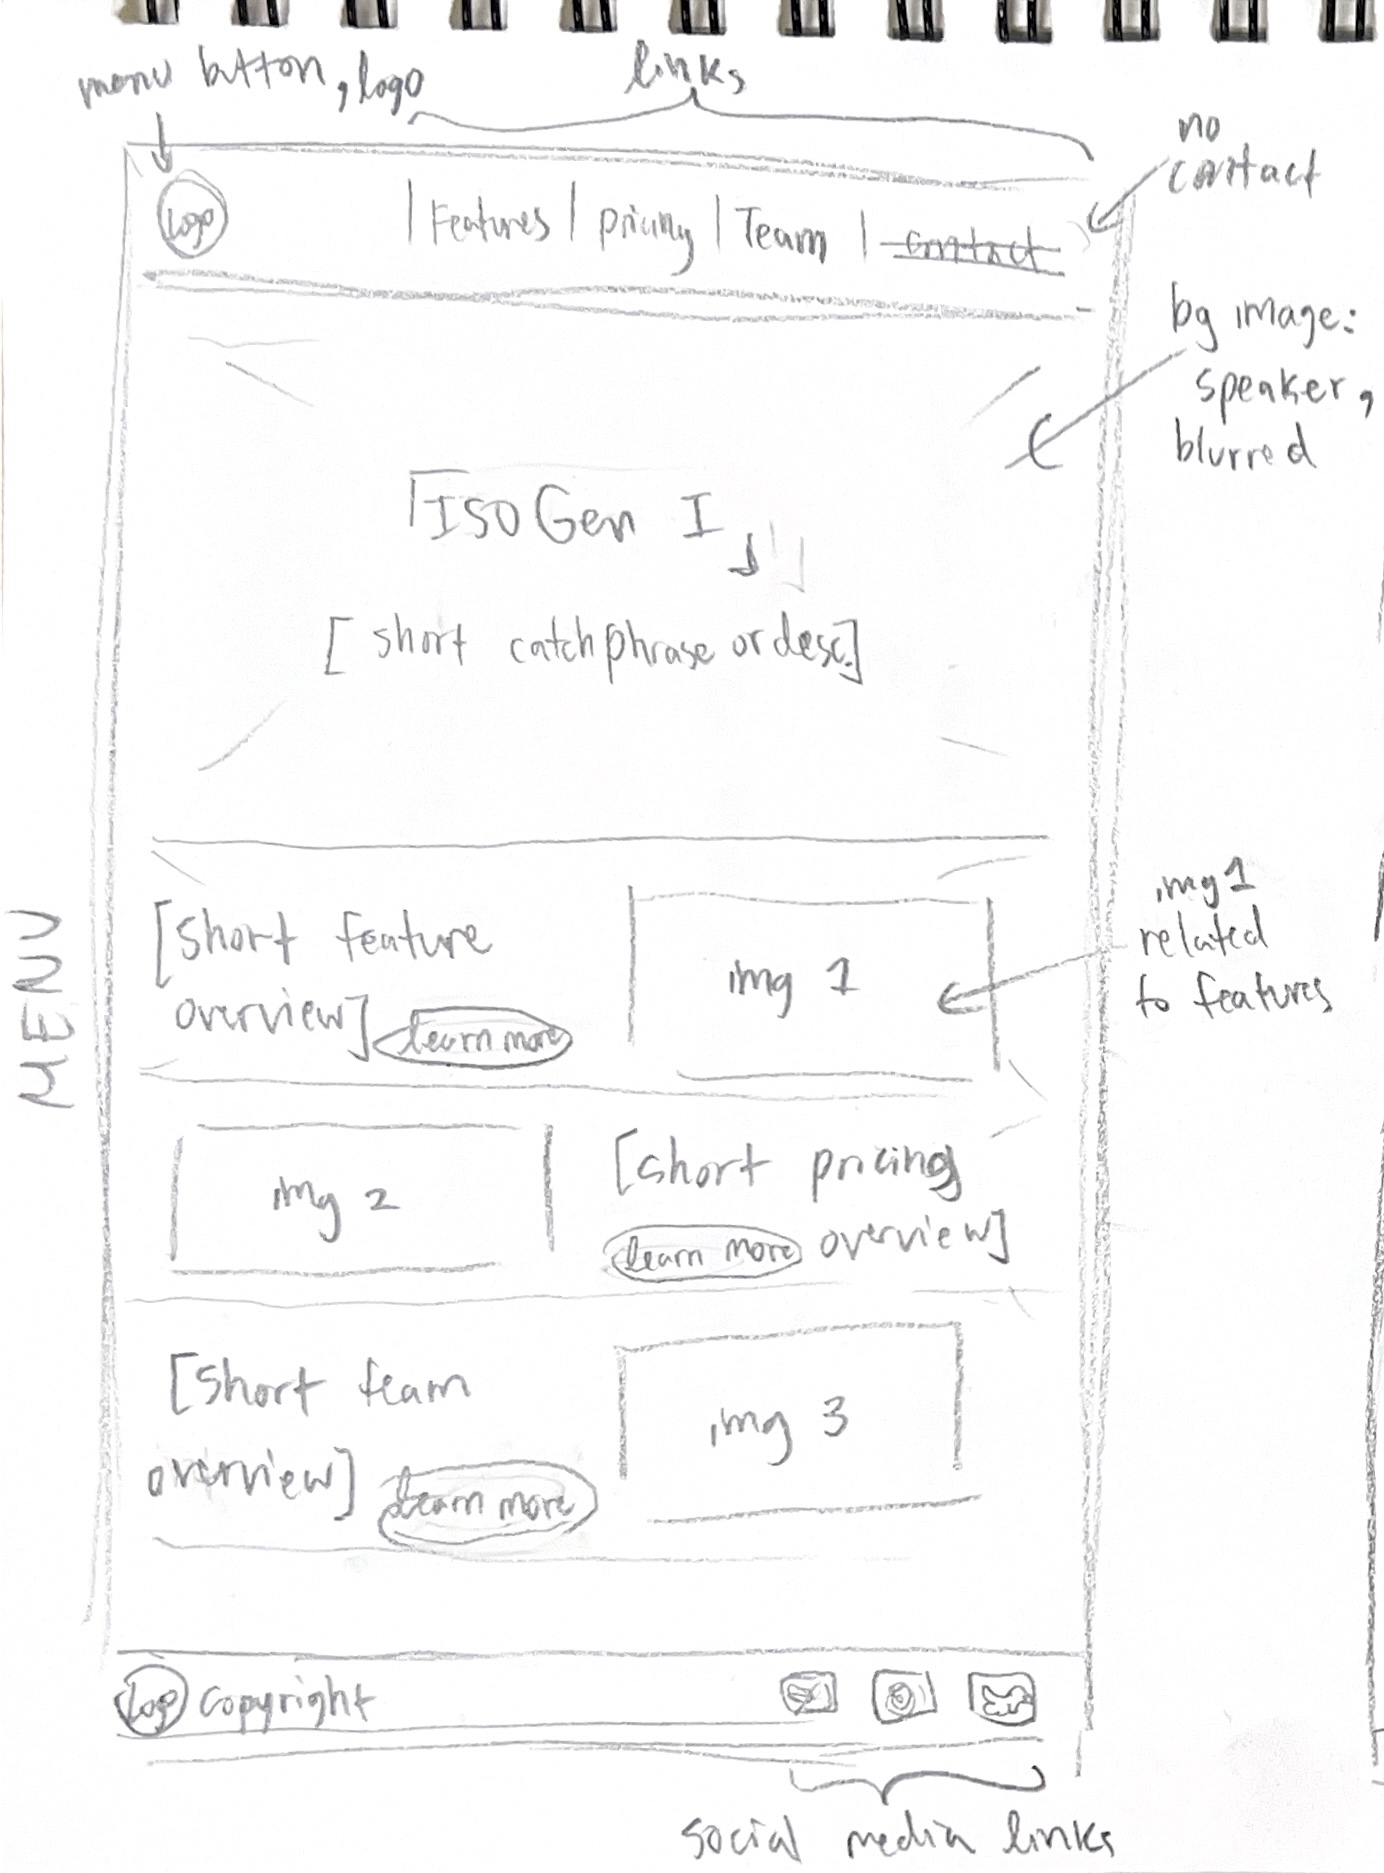 menu button, logo
links,
no
contact
logo
| Features | pricing | Team | contact
bg image:
speaker,
blurred
「ISO Gen I」
[short catchphrase or desc.]
MENU
[short feature
overview]
learn more
img 1
img 1
related
to features
img 2
[short pricing
overview]
learn more
[short team
overview]
learn more
img 3
logo
copyright
social media links